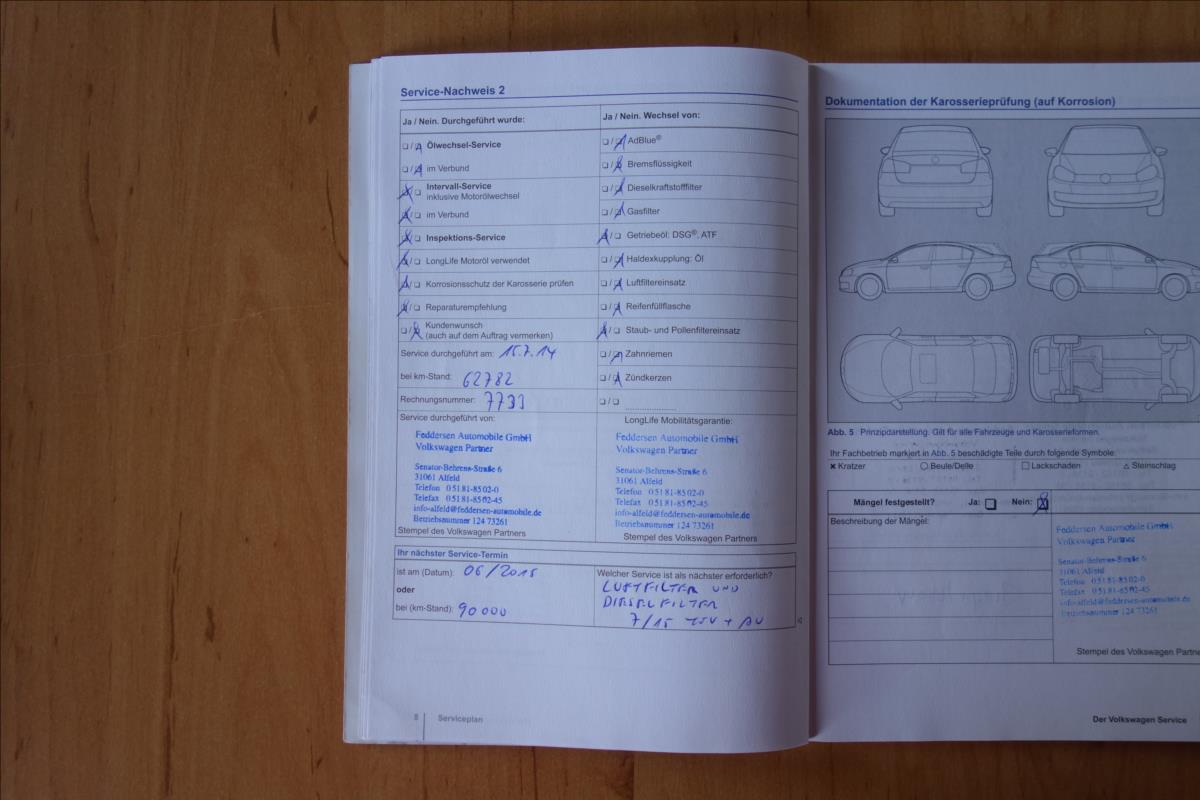 Service-Nachweis 2
Ja / Nein. Durchgeführt wurde:
Ölwechsel-Service
im Verbund
Intervall-Service
inklusive Motorölwechsel
im Verbund
Inspektions-Service
LongLife Motoröl verwendet
Korrosionsschutz der Karosserie prüfen
Reparaturempfehlung
Kundenwunsch
(auch auf dem Auftrag vermerken)
Service durchgeführt am: 15.7.14
bei km-Stand: 62782
Rechnungsnummer: 7733
Service durchgeführt von:
Feddersen Automobile GmbH
Volkswagen Partner
Senator-Behrens-Straße 6
31061 Alfeld
Telefon 05181-8502-0
Telefax 05181-8502-45
info-alfeld@feddersen-automobile.de
Betriebsnummer 124 73261
Stempel des Volkswagen Partners
Ja / Nein. Wechsel von:
AdBlue®
Bremsflüssigkeit
Dieselkraftstofffilter
Gasfilter
Getriebeöl: DSG®, ATF
Haldexkupplung: Öl
Luftfiltereinsatz
Reifenfüllflasche
Staub- und Pollenfiltereinsatz
Zahnriemen
Zündkerzen
LongLife Mobilitätsgarantie:
Feddersen Automobile GmbH
Volkswagen Partner
Senator-Behrens-Straße 6
31061 Alfeld
Telefon 05181-8502-0
Telefax 05181-8502-45
info-alfeld@feddersen-automobile.de
Betriebsnummer 124 73261
Stempel des Volkswagen Partners
Ihr nächster Service-Termin
ist am (Datum): 06/2015
oder
bei (km-Stand): 90000
Welcher Service ist als nächster erforderlich?
LUFTFILTER UND
DIESELFILTER
7/15 + AU
8 Serviceplan
Dokumentation der Karosserieprüfung (auf Korrosion)
Abb. 5 Prinzipdarstellung. Gilt für alle Fahrzeuge und Karosserieformen.
Ihr Fachbetrieb markiert in Abb. 5 beschädigte Teile durch folgende Symbole:
Kratzer Beule/Delle Lackschaden Steinschlag
Mängel festgestellt? Ja: Nein:
Beschreibung der Mängel:
Feddersen Automobile GmbH
Volkswagen Partner
Senator-Behrens-Straße 6
31061 Alfeld
Telefon 05181-8502-0
Telefax 05181-8502-45
info-alfeld@feddersen-automobile.de
Betriebsnummer 124 73261
Stempel des Volkswagen Partne
Der Volkswagen Service